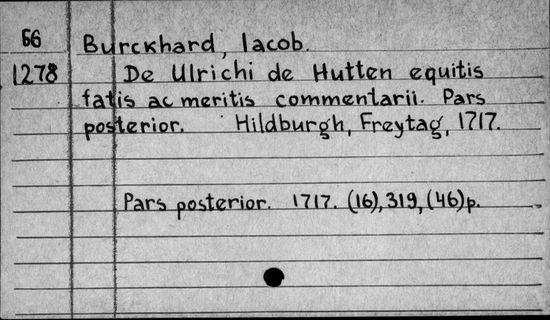 66 Burckhard, Iacob.
1278 De Ulrichi de Hutten equitis
fatis ac meritis commentarii. Pars
posterior. Hildburgh, Freytag, 1717.
Pars posterior. 1717. (16), 319, (46)p.